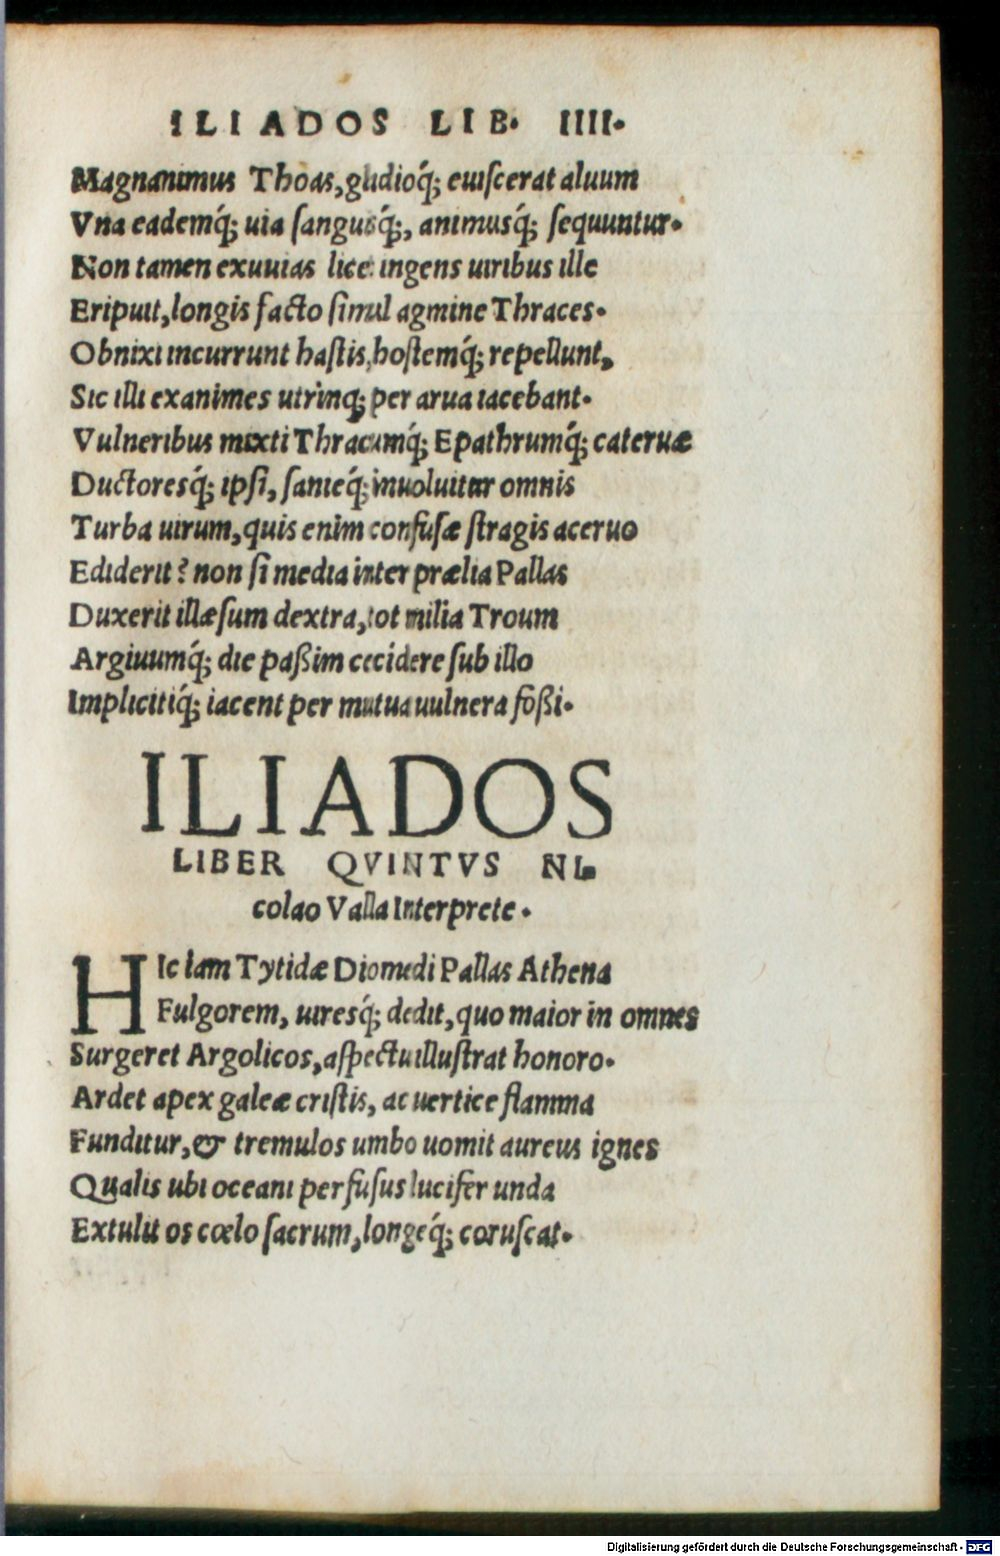 ILIADOS LIB. IIII.
Magnanimus Thoas, gladioq́; euiscerat aluum
Vna eademq́; uia sangusq́;, animusq́; sequuntur.
Non tamen exuuias licet ingens uiribus ille
Eripuit, longis facto simul agmine Thraces.
Obnixi incurrunt hastis, hostemq́; repellunt,
Sic illi exanimes utrinq; per arua iacebant.
Vulneribus mixti Thracumq́; Epathrumq́; cateruæ
Ductoresq́; ipsi, sanieq́; inuoluitur omnis
Turba uirum, quis enim confusæ stragis aceruo
Ediderit? non si media inter prælia Pallas
Duxerit illæsum dextra, tot milia Troum
Argiuumq́; die paßim cecidere sub illo
Implicitiq́; iacent per mutua uulnera foßi.
ILIADOS
LIBER QVINTVS NI.
colao Valla Interprete.
HIc Iam Tytidæ Diomedi Pallas Athena
Fulgorem, uiresq́; dedit, quo maior in omnes
Surgeret Argolicos, aspectu illustrat honoro.
Ardet apex galeæ cristis, ac uertice flamma
Funditur, & tremulos umbo uomit aureus ignes
Qualis ubi oceani perfusus lucifer unda
Extulit os cœlo sacrum, longeq́; coruscat.
Digitalisierung gefördert durch die Deutsche Forschungsgemeinschaft - DFG